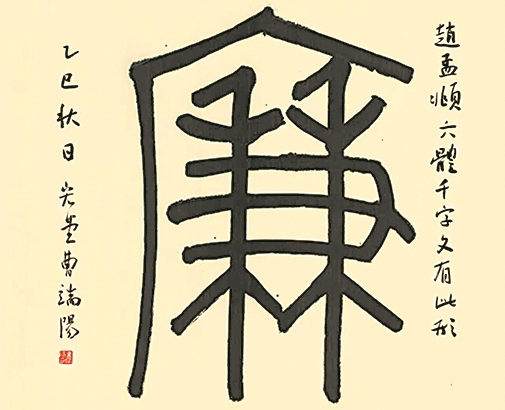 趙孟頫六體千字文有此形
廉
乙巳秋日曹端陽